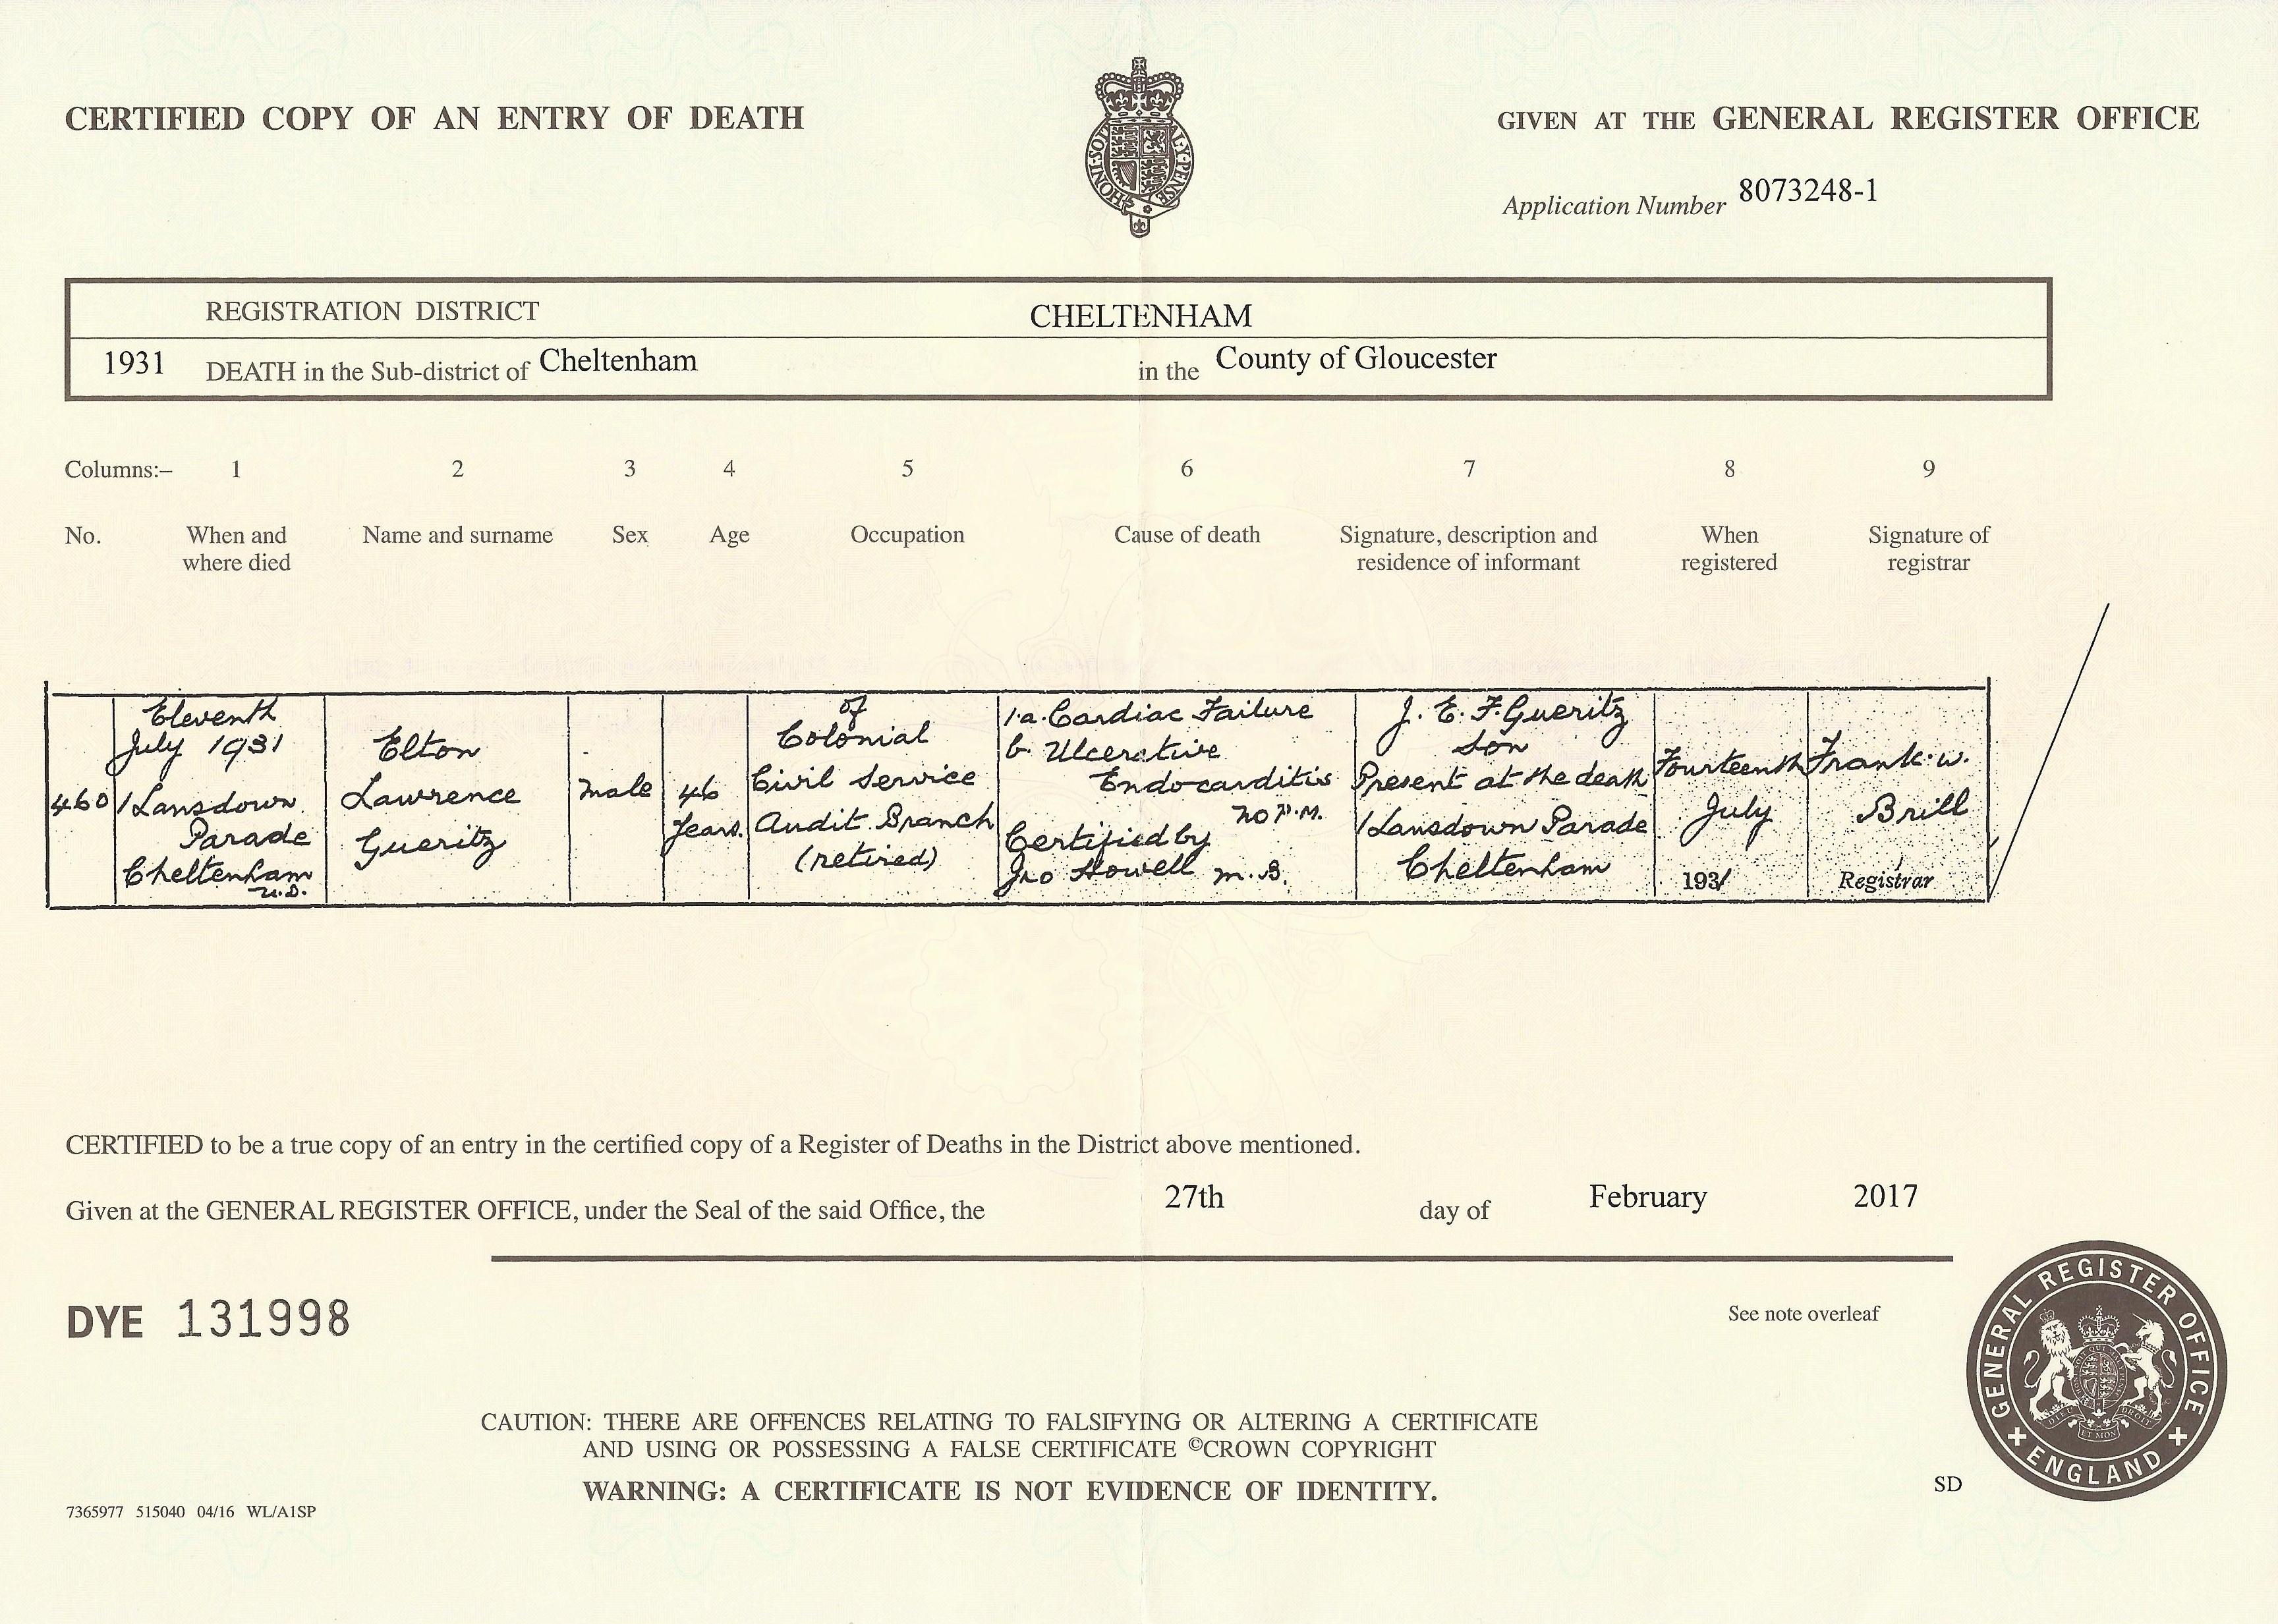 CERTIFIED COPY OF AN ENTRY OF DEATH
GIVEN AT THE GENERAL REGISTER OFFICE
HONI·SOIT
AL·Y·PENSE
Application Number 8073248-1
REGISTRATION DISTRICT CHELTENHAM
1931 DEATH in the Sub-district of Cheltenham in the County of Gloucester
Columns:– 1 2 3 4 5 6 7 8 9
No. When and where died Name and surname Sex Age Occupation Cause of death Signature, description and residence of informant When registered Signature of registrar
460
Eleventh
July 1931
1 Lansdown
Parade
Cheltenham
U.D.
Elton
Lawrence
Gueritz
Male
46
Years.
of
Colonial
Civil Service
Audit Branch
(retired)
1.a. Cardiac Failure
b. Ulcerative
Endocarditis
no P.M.
Certified by
Jno Howell M.B.
J. E. F. Gueritz
Son
Present at the death
1 Lansdown Parade
Cheltenham
Fourteenth
July
1931
Frank W.
Brill
Registrar
CERTIFIED to be a true copy of an entry in the certified copy of a Register of Deaths in the District above mentioned.
Given at the GENERAL REGISTER OFFICE, under the Seal of the said Office, the 27th day of February 2017
DYE 131998
See note overleaf
GENERAL REGISTER OFFICE
ENGLAND
CAUTION: THERE ARE OFFENCES RELATING TO FALSIFYING OR ALTERING A CERTIFICATE
AND USING OR POSSESSING A FALSE CERTIFICATE ©CROWN COPYRIGHT
WARNING: A CERTIFICATE IS NOT EVIDENCE OF IDENTITY.
SD
7365977 515040 04/16 WL/A1SP